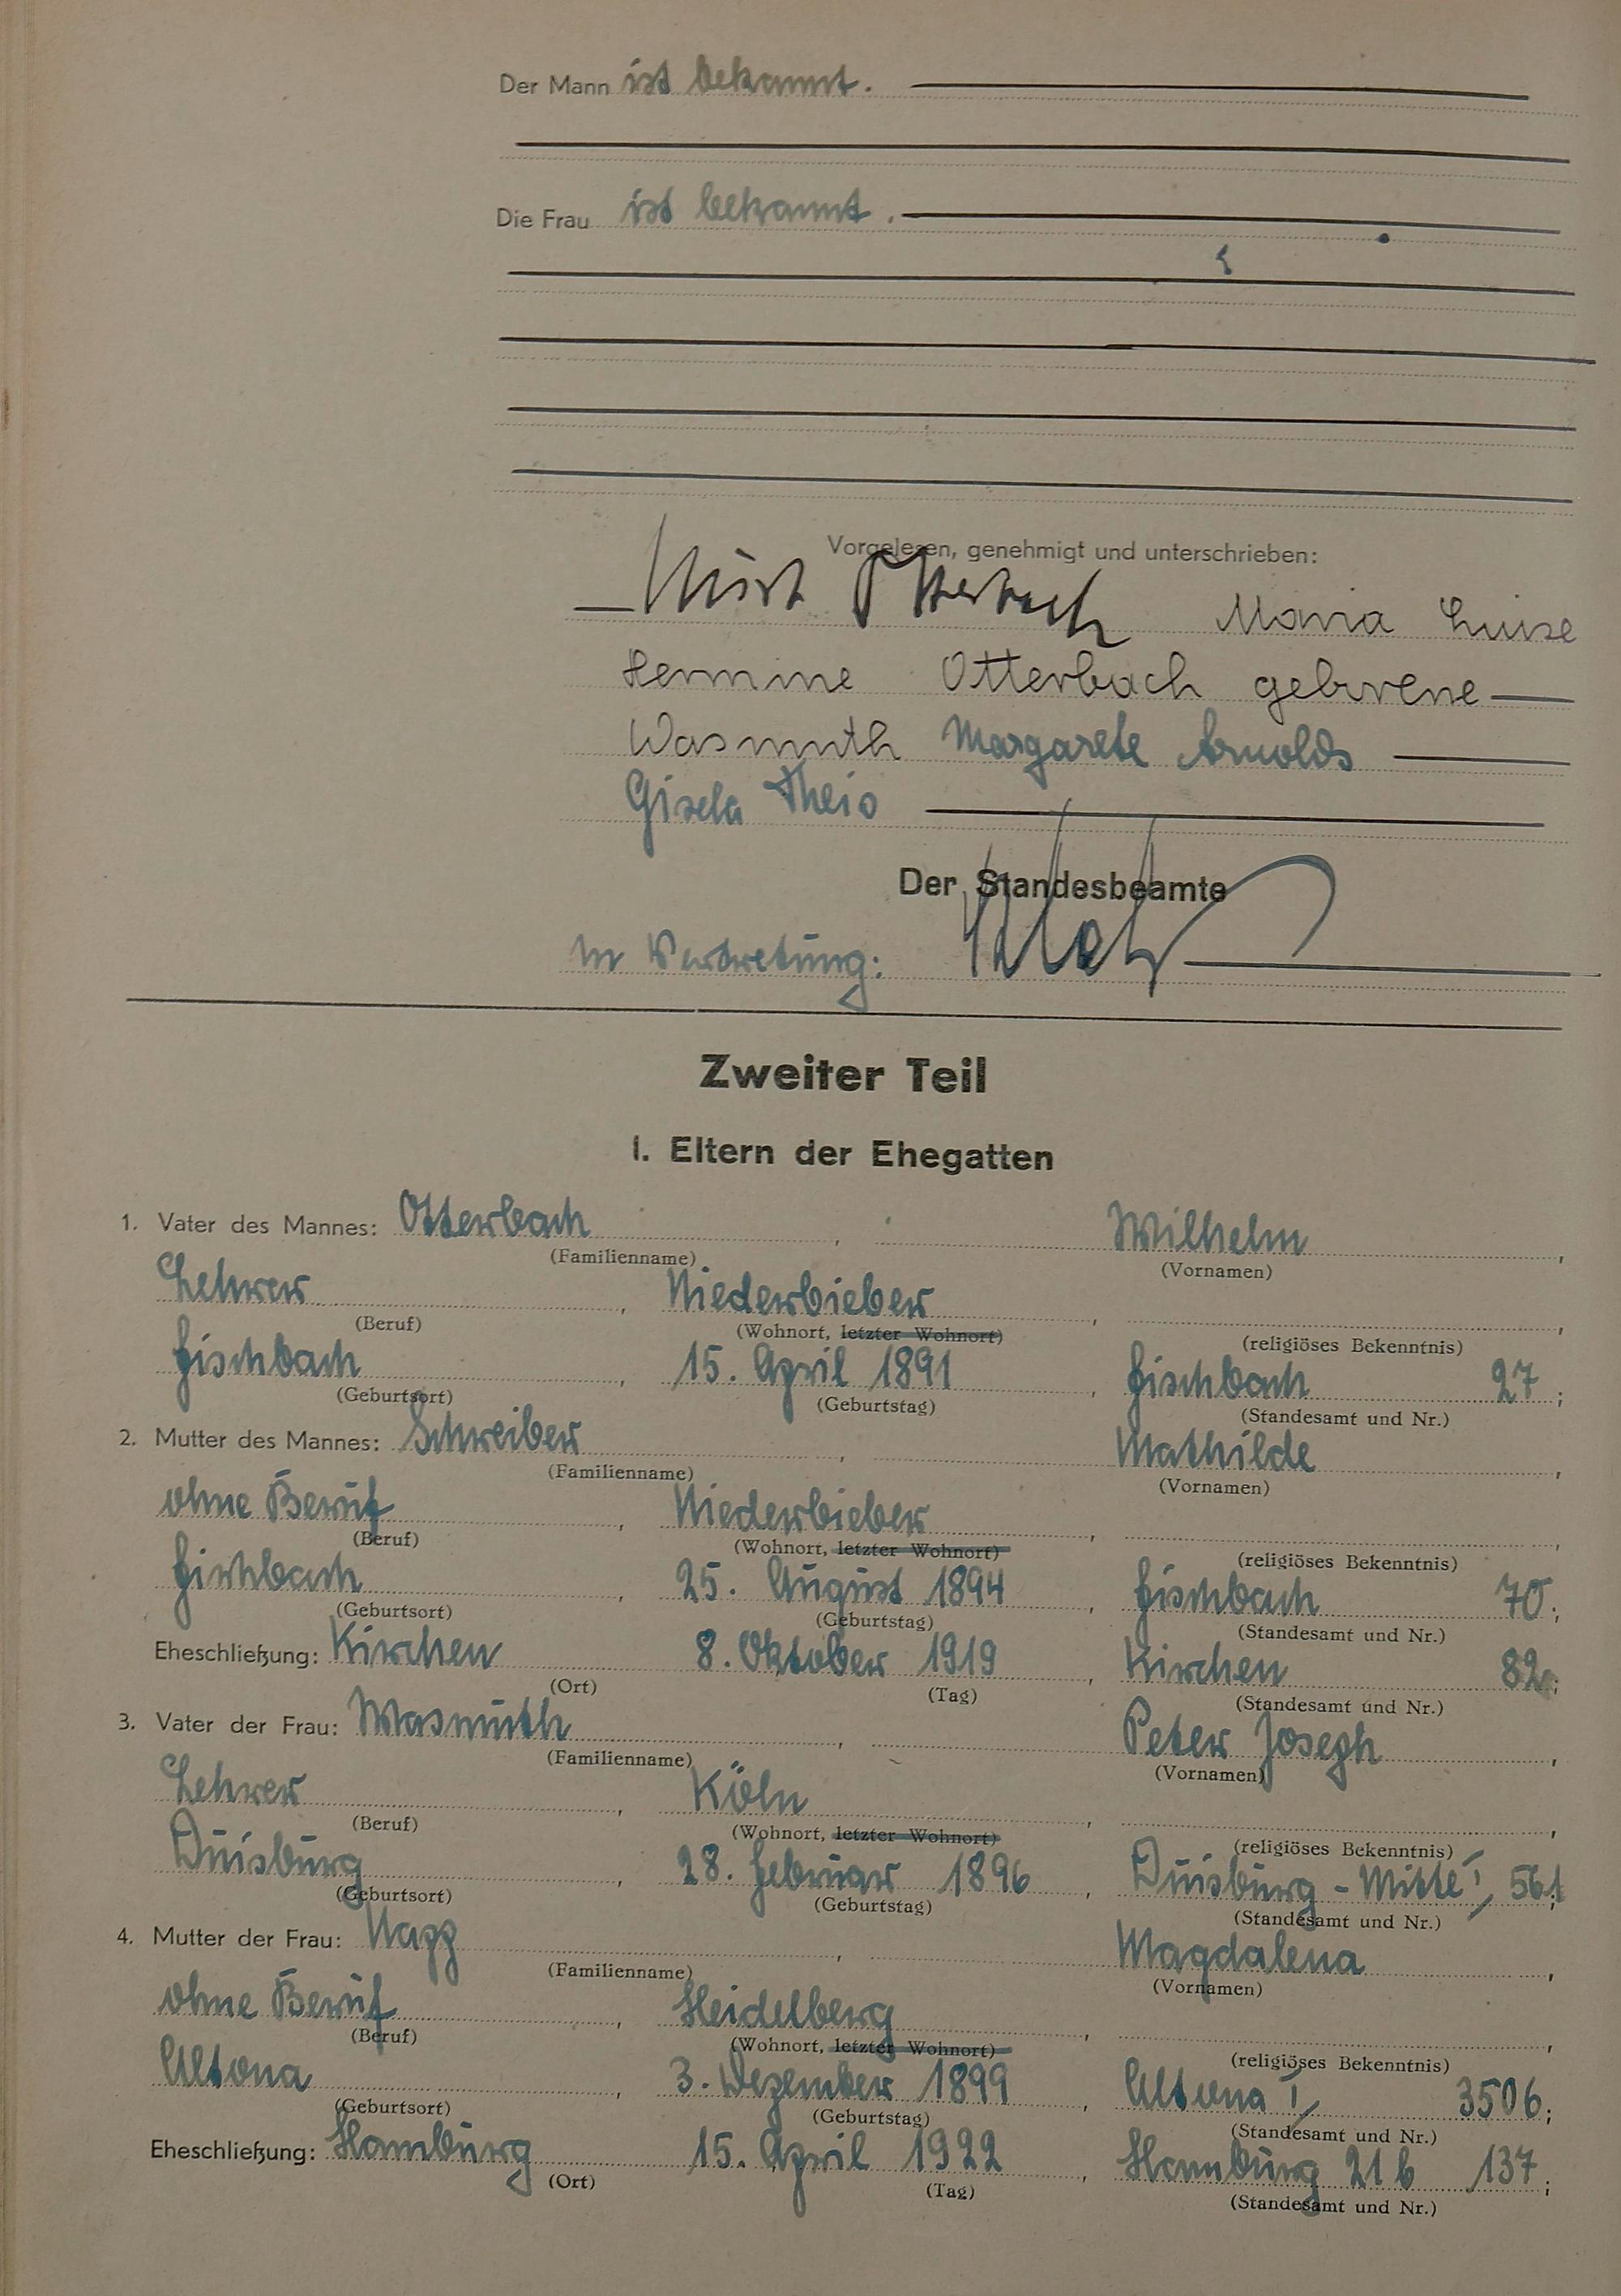 Der Mann ist bekannt.
Die Frau ist bekannt.
Vorgelesen, genehmigt und unterschrieben:
Kurt Otterbach Maria Luise
Hermine Otterbach geborene
Wasmuth Margarete Arnolds
Gisela Theis
Der Standesbeamte
In Vertretung:
Zweiter Teil
I. Eltern der Ehegatten
1. Vater des Mannes: Otterbach, Wilhelm,
(Familienname) (Vornamen)
Lehrer, Niederbieber,
(Beruf) (Wohnort, letzter Wohnort) (religiöses Bekenntnis)
Fischbach, 15. April 1891, Fischbach 27;
(Geburtsort) (Geburtstag) (Standesamt und Nr.)
2. Mutter des Mannes: Schreiber, Mathilde,
(Familienname) (Vornamen)
ohne Beruf, Niederbieber,
(Beruf) (Wohnort, letzter Wohnort) (religiöses Bekenntnis)
Fischbach, 25. August 1894, Fischbach 70;
(Geburtsort) (Geburtstag) (Standesamt und Nr.)
Eheschließung: Kirchen 8. Oktober 1919, Kirchen 82;
(Ort) (Tag) (Standesamt und Nr.)
3. Vater der Frau: Wasmuth, Peter Joseph,
(Familienname) (Vornamen)
Lehrer, Köln,
(Beruf) (Wohnort, letzter Wohnort) (religiöses Bekenntnis)
Duisburg, 28. Februar 1896, Duisburg-Mitte I, 561;
(Geburtsort) (Geburtstag) (Standesamt und Nr.)
4. Mutter der Frau: Napp, Magdalena,
(Familienname) (Vornamen)
ohne Beruf, Heidelberg,
(Beruf) (Wohnort, letzter Wohnort) (religiöses Bekenntnis)
Altona, 3. Dezember 1899, Altona I, 3506;
(Geburtsort) (Geburtstag) (Standesamt und Nr.)
Eheschließung: Hamburg 15. April 1922, Hamburg 21b 137;
(Ort) (Tag) (Standesamt und Nr.)